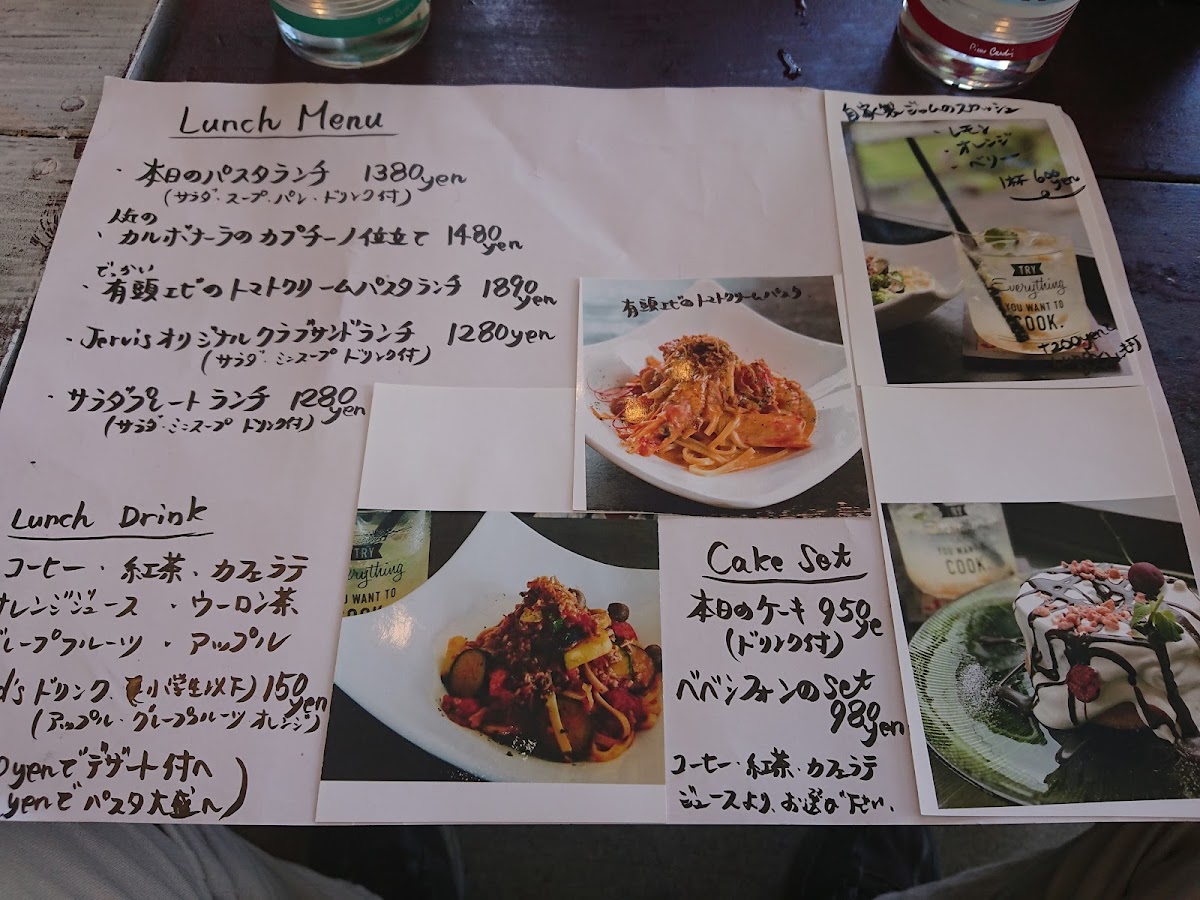 Lunch Menu
・本日のパスタランチ 1380yen
(サラダ・スープ・パン・ドリンク付)
人気の
・カルボナーラのカプチーノ仕立て 1480yen
でっかい
・有頭エビのトマトクリームパスタランチ 1890yen
・Jervisオリジナルクラブサンドランチ 1280yen
(サラダ・ミニスープ ドリンク付)
・サラダプレートランチ 1280yen
(サラダ・ミニスープ ドリンク付)
Lunch Drink
コーヒー・紅茶・カフェラテ
オレンジジュース ・ウーロン茶
グレープフルーツ ・アップル
d's ドリンク (小学生以下) 150yen
(アップル・グレープフルーツ オレンジ)
0yenでデザート付へ
yenでパスタ大盛へ)
有頭エビのトマトクリームパスタ
TRY
erything
WANT TO
Cake Set
本日のケーキ 950ye
(ドリンク付)
ベベシフォンのset
980yen
コーヒー・紅茶・カフェラテ
ジュースより、お選び下さい。
自家製ジャムのスカッシュ
・レモン
・オレンジ
・ベリー
1杯 600yen
TRY
Everything
YOU WANT TO
COOK.
+200yen
TRY
YOU WANT
COOK
Pierre Cardin